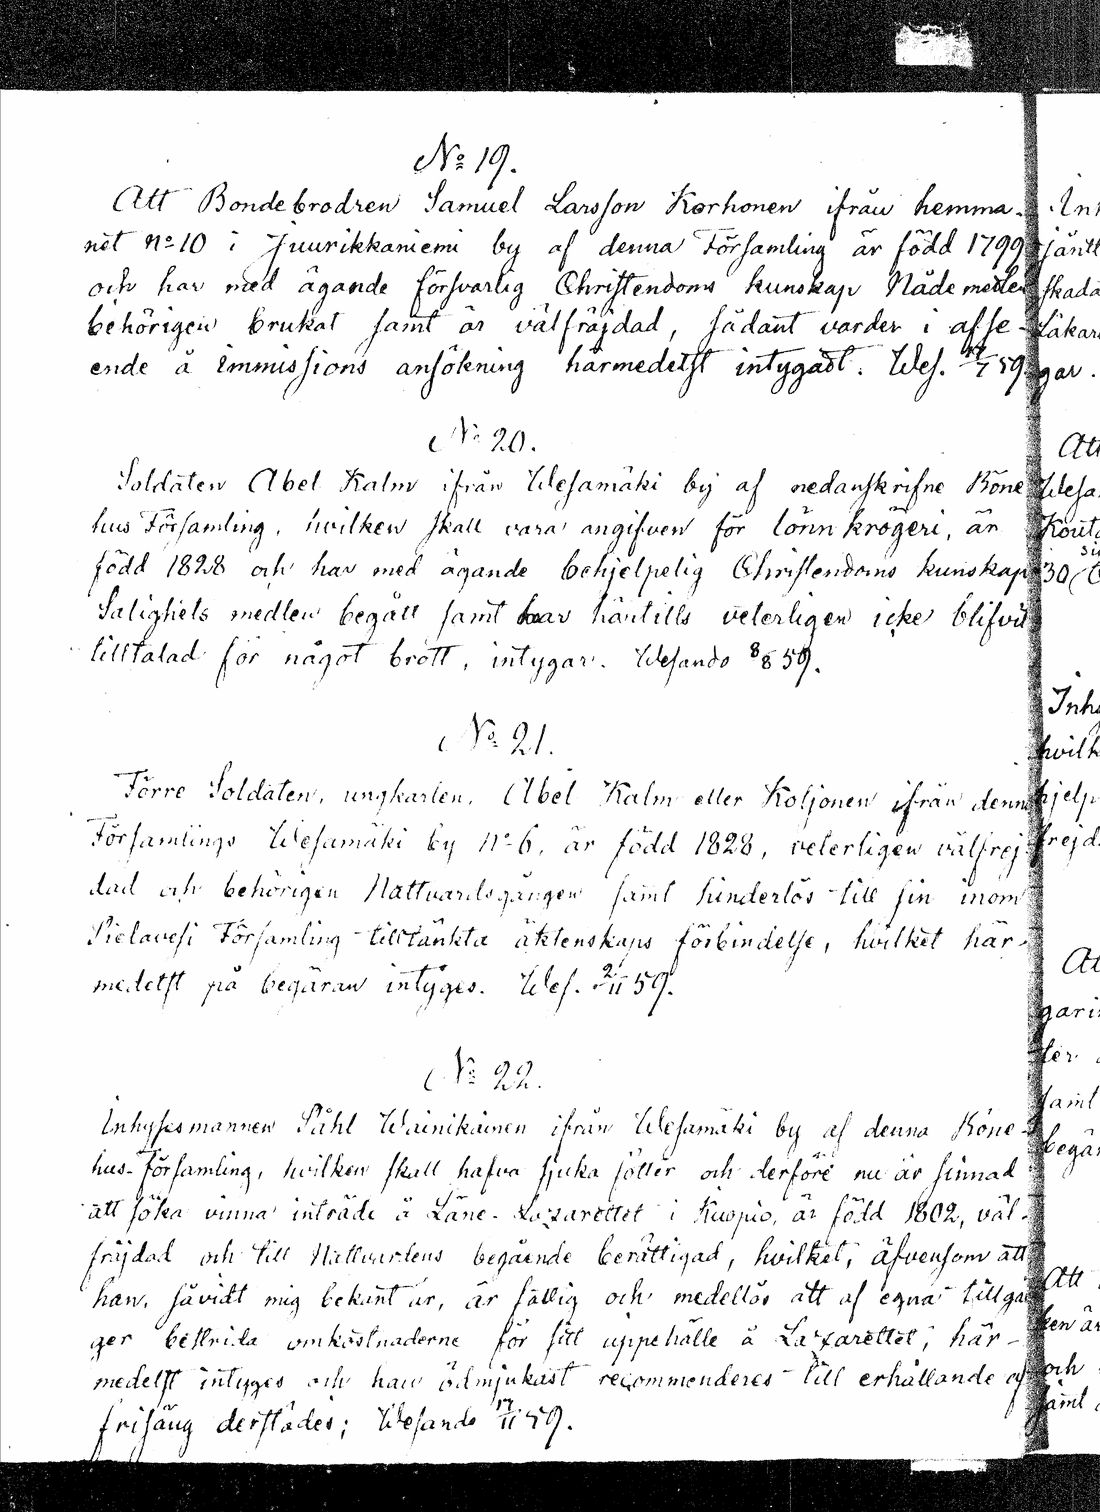 No 19.
Att Bondebrodren Samuel Larsson Korhonen ifrån hemma-
net No 10 i Juurikkaniemi by af denna Församling är född 1799
och har med ägande försvarlig Christendoms kunskap Nåde medlen
behörigen brukat samt är välfräjdad, sådant varder i afse-
ende å immissions ansökning härmedelst intygadt. Wes. 59.
No 20.
Soldaten Abel Kalm ifrån Wesamäki by af nedanskrifne Böne
hus Församling, hvilken skall vara angifven för lönnkrögeri, är
född 1828 och har med ägande behjelpelig Christendoms kunskap
Salighets medlen begått samt har härtills veterligen icke blifvit
tilltalad för något brott, intygar. Wesando 8/8 59.
No 21.
Förre Soldaten, ungkarlen, Abel Kalm eller Koljonen ifrån denna
Församlings Wesamäki by No 6, är född 1828, veterligen välfrej-
dad och behörigen Nattvardsgången samt hinderlös till sin inom
Pielavesi Församling tilltänkta äktenskaps förbindelse, hvilket här-
medelst på begäran intyges. Wes. 2/11 59.
No 22.
Inhysesmannen Påhl Wainikainen ifrån Wesamäki by af denna Böne-
hus-Församling, hvilken skall hafva sjuka fötter och derföre nu är sinnad
att söka vinna inträde å Läne-Lazarettet i Kuopio, är född 1802, väl-
fräjdad och till Nattvardens begående berättigad, hvilket, äfvensom att
han, såvidt mig bekant är, är fattig och medellös att af egna tillgån
ger bestrida omkostnaderne för sitt uppehälle å Lazarettet, här-
medelst intyges och han ödmjukast recommenderes till erhållande af
frisäng derstädes; Wesando 17/11 59.